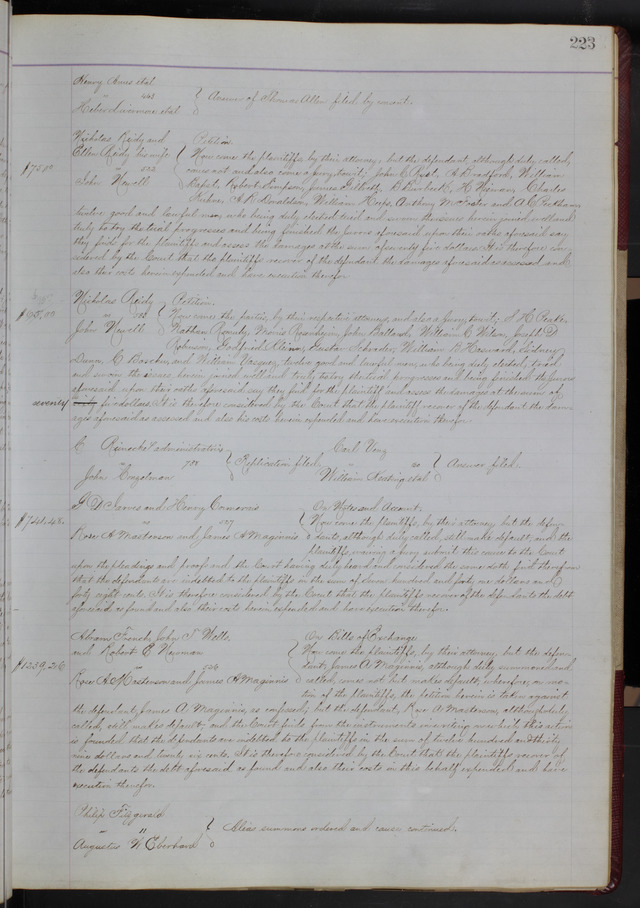 223
Henry Ames et al
vs 463 Answer of Thomas Allen filed by consent.
et al
Nicholas Reidy and Petition
Ellen Reidy his wife Now come the plaintiffs by their attorney, but the defendant, although duly called,
$75.00 vs 552 comes not and also come a jury to wit; John C , A Bradford, William
John Newell Robert Simpson, James , B , H , Charles
William Hope, Anthony and A C
twelve good and lawful men, who being duly elected tried and sworn the issues herein joined well and
truly to try the trial progresses and being finished the jurors aforesaid upon their oaths aforesaid say
they find for the plaintiffs and assess the damages at the sum of seventy five dollars. It is therefore con-
sidered by the Court that the plaintiffs recover of the defendant the damages aforesaid as assessed and
also their costs herein expended and have execution therefor.
Nicholas Reidy Petition.
vs Now come the parties, by their respective attorneys, and also a jury to wit; S H
John Newell Nathan , Morris Rosenheim, John Bolland, William C Wilson, Joseph D
Robinson, Gottfried Kleine, Gustav Schrader, William B Haward, Sidney
Dunn, C and William twelve good and lawful men, who being duly elected, tried
and sworn the issues herein joined well and truly to try the trial progresses and being finished the jurors
aforesaid upon their oaths aforesaid say they find for the plaintiff and assess the damages at the sum of
seventy five dollars. It is therefore considered by the Court that the plaintiff recover of the defendant the dam-
ages aforesaid as assessed and also his costs herein expended and have execution therefor.
C administratrix Carl
vs 788 Replication filed. vs 20 Answer filed.
John Engelman William et al
G D James and Henry On Note and Account.
$741.48 vs 127 Now come the plaintiffs, by their attorney but the defen-
Rose A Masterson and James A Maginnis dants, although duly called, still make default, and the
plaintiffs waiving a jury submit this cause to the Court
upon the pleadings and proofs and the Court having duly heard and considered the same doth find therefrom
that the defendants are indebted to the plaintiffs in the sum of seven hundred and forty one dollars and
forty eight cents. It is therefore considered by the Court that the plaintiffs recover of the defendants the debt
aforesaid as found and also their costs herein expended and have execution therefor.
Abram French, John S Wells On Bills of Exchange
and Robert C Newman Now come the plaintiffs, by their attorney, but the defen-
$1239.26 vs 134 dant, James A. Maginnis, although duly summoned and
Rose A Masterson and James A Maginnis called, comes not but makes default; wherefore, on mo-
tion of the plaintiffs, the petition herein is taken against
the defendant James A. Maginnis, as confessed; but the defendant, Rose A Masterson, although duly
called, still makes default; and the Court finds from the instruments in writing sued on this action
is founded that the defendants are indebted to the plaintiffs in the sum of twelve hundred and thirty
nine dollars and twenty six cents. It is therefore considered by the Court that the plaintiffs recover of
the defendants the debt aforesaid as found and also their costs in this behalf expended and have
execution therefor.
Philip Fitzgerald
vs 11 Alias summons ordered and cause continued.
Augustus W Eberhard